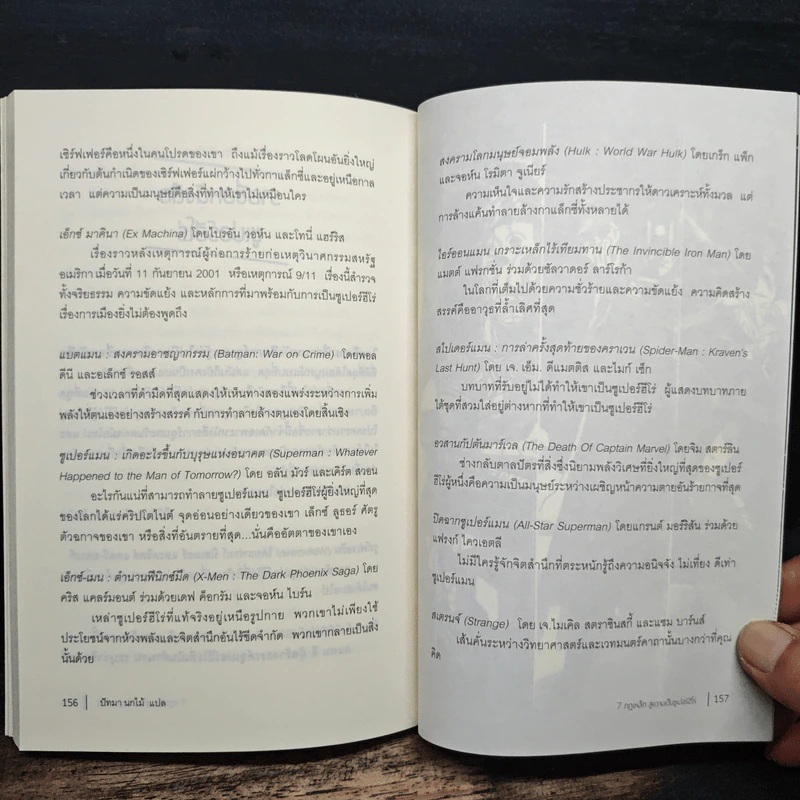 เซิร์ฟเฟอร์คือหนึ่งในคนโปรดของเขา ถึงแม้เรื่องราวโลดโผนอันยิ่งใหญ่
เกี่ยวกับต้นกำเนิดของเซิร์ฟเฟอร์แผ่กว้างไปทั่วกาแล็กซี่และอยู่เหนือกาล
เวลา แต่ความเป็นมนุษย์คือสิ่งที่ทำให้เขาไม่เหมือนใคร
เอ็กซ์ มาคินา (Ex Machina) โดยไบรอัน วอห์น และโทนี่ แฮร์ริส
เรื่องราวหลังเหตุการณ์ผู้ก่อการร้ายก่อเหตุวินาศกรรมสหรัฐ
อเมริกา เมื่อวันที่ 11 กันยายน 2001 หรือเหตุการณ์ 9/11 เรื่องนี้สำรวจ
ทั้งจริยธรรม ความขัดแย้ง และหลักการที่มาพร้อมกับการเป็นซูเปอร์ฮีโร่
เรื่องการเมืองยิ่งไม่ต้องพูดถึง
แบตแมน : สงครามอาชญากรรม (Batman: War on Crime) โดยพอล
ดีนี และอเล็กซ์ รอสส์
ช่วงเวลาที่ดำมืดที่สุดแสดงให้เห็นทางสองแพร่งระหว่างการเพิ่ม
พลังให้ตนเองอย่างสร้างสรรค์ กับการทำลายล้างตนเองโดยสิ้นเชิง
ซูเปอร์แมน : เกิดอะไรขึ้นกับบุรุษแห่งอนาคต (Superman : Whatever
Happened to the Man of Tomorrow?) โดย อลัน มัวร์ และเคิร์ต สวอน
อะไรกันแน่ที่สามารถทำลายซูเปอร์แมน ซูเปอร์ฮีโร่ผู้ยิ่งใหญ่ที่สุด
ของโลกได้แร่คริปโตไนต์ จุดอ่อนอย่างเดียวของเขา เล็กซ์ ลูธอร์ ศัตรู
ตัวฉกาจของเขา หรือสิ่งที่อันตรายที่สุด...นั่นคืออัตตาของเขาเอง
เอ็กซ์-เมน : ตำนานฟีนิกซ์มืด (X-Men : The Dark Phoenix Saga) โดย
คริส แคลร์มอนต์ ร่วมด้วยเดฟ ค็อกรัม และจอห์น ไบร์น
เหล่าซูเปอร์ฮีโร่ที่แท้จริงอยู่เหนือรูปกาย พวกเขาไม่เพียงใช้
ประโยชน์จากห้วงพลังและจิตสำนึกอันไร้ขีดจำกัด พวกเขากลายเป็นสิ่ง
นั้นด้วย
156 | ปัทมา นกไม้ แปล
สงครามโลกมนุษย์จอมพลัง (Hulk : World War Hulk) โดยเกร็ก แพ็ก
และจอห์น โรมิตา จูเนียร์
ความเห็นใจและความรักสร้างประชากรให้ดาวเคราะห์ทั้งมวล แต่
การล้างแค้นทำลายล้างกาแล็กซี่ทั้งหลายได้
ไอร์ออนแมน เกราะเหล็กไร้เทียมทาน (The Invincible Iron Man) โดย
แมตต์ แฟรกชั่น ร่วมด้วยซัลวาดอร์ ลาร์โรก้า
ในโลกที่เต็มไปด้วยความชั่วร้ายและความขัดแย้ง ความคิดสร้าง
สรรค์คืออาวุธที่ล้ำเลิศที่สุด
สไปเดอร์แมน : การล่าครั้งสุดท้ายของคราเวน (Spider-Man : Kraven's
Last Hunt) โดย เจ. เอ็ม. ดีแมตติส และไมก์ เซ็ก
บทบาทที่รับอยู่ไม่ได้ทำให้เขาเป็นซูเปอร์ฮีโร่ ผู้แสดงบทบาทภาย
ใต้ชุดที่สวมใส่อยู่ต่างหากที่ทำให้เขาเป็นซูเปอร์ฮีโร่
อวสานกัปตันมาร์เวล (The Death Of Captain Marvel) โดยจิม สตาร์ลิน
ช่างกลับตาลปัตรที่สิ่งซึ่งนิยามพลังวิเศษที่ยิ่งใหญ่ที่สุดของซูเปอร์
ฮีโร่ผู้หนึ่งคือความเป็นมนุษย์ระหว่างเผชิญหน้าความตายอันร้ายกาจที่สุด
ปิดฉากซูเปอร์แมน (All-Star Superman) โดยแกรนต์ มอร์ริสัน ร่วมด้วย
แฟรงก์ ไควเอตลี
ไม่มีใครรู้จักจิตสำนึกที่ตระหนักรู้ถึงความอนิจจัง ไม่เที่ยง ดีเท่า
ซูเปอร์แมน
สเตรนจ์ (Strange) โดย เจ.ไมเคิล สตราซินสกี้ และแซม บาร์นส์
เส้นคั่นระหว่างวิทยาศาสตร์และเวทมนตร์คาถานั้นบางกว่าที่คุณ
คิด
7 กฎเหล็ก สู่ความเป็นซูเปอร์ฮีโร่ | 157